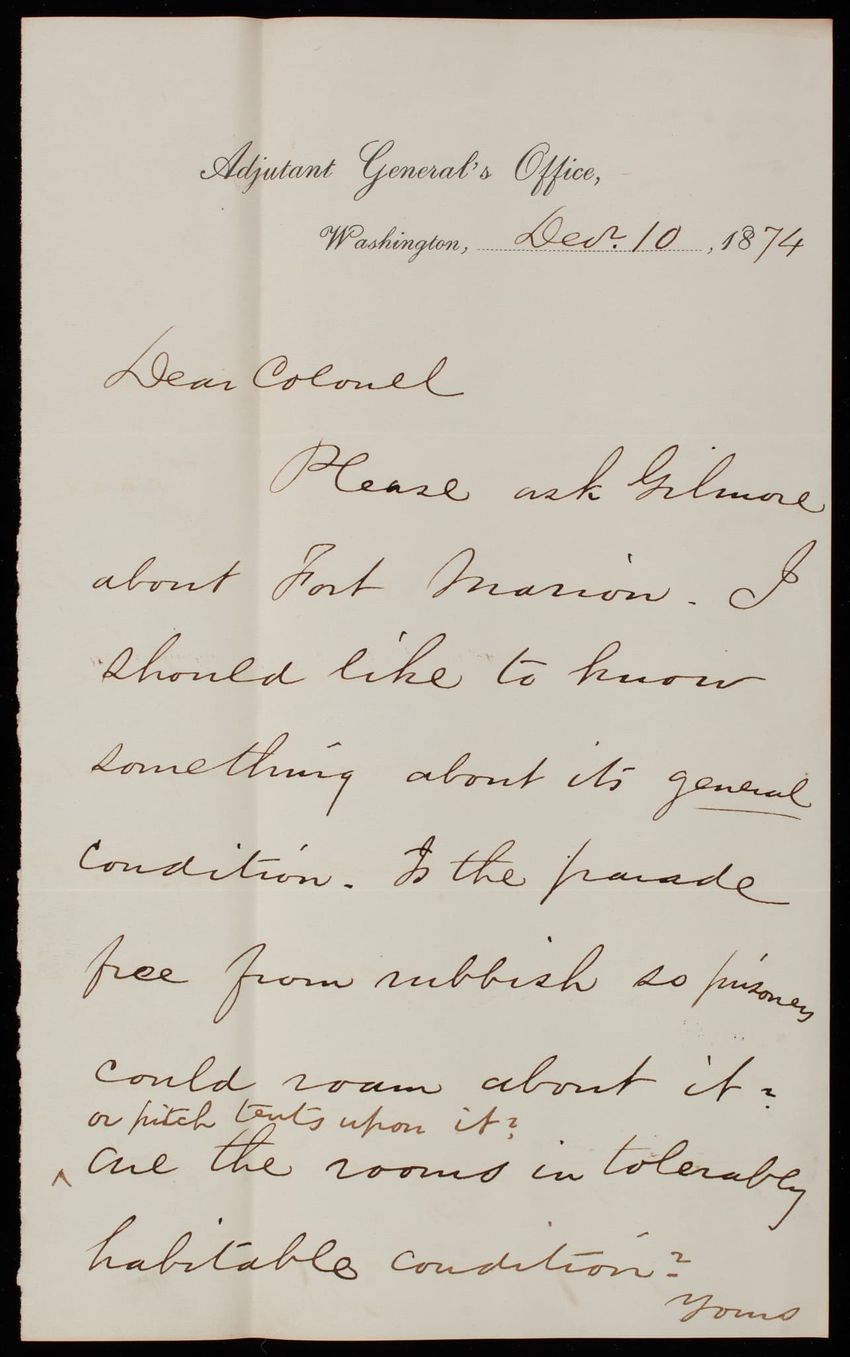 Adjutant General's Office,
Washington, Decr. 10, 1874
Dear Colonel
Please ask Gilmore
about Fort Marion. I
should like to know
something about its general
condition. Is the parade
free from rubbish so prisoners
could roam about it?
or pitch tents upon it?
^ are the rooms in tolerably
habitable condition?
Yours